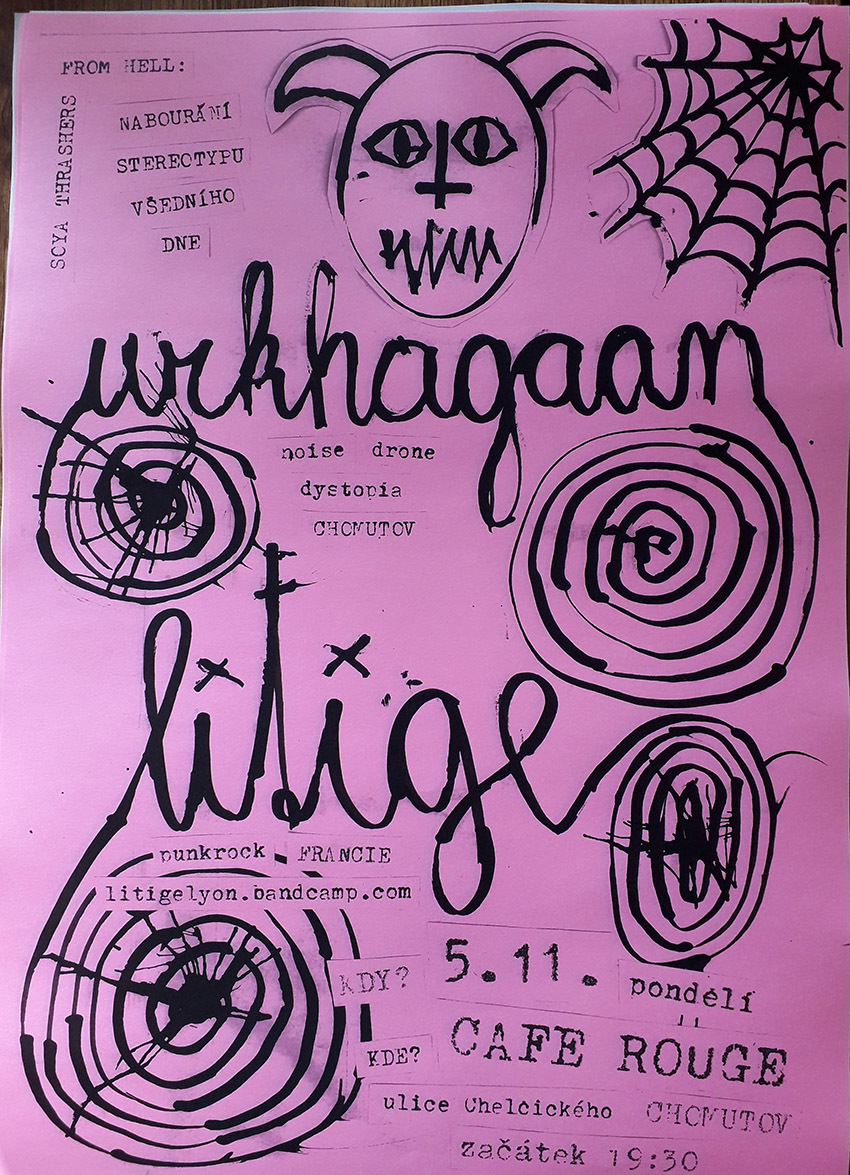 FROM HELL:
SCYA THRASHERS
NABOURÁNÍ
STEREOTYPU
VŠEDNÍHO
DNE
urkhagaan
noise drone
dystopia
CHOMUTOV
litige
punkrock - FRANCIE
litigelyon.bandcamp.com
KDY? 5.11. pondělí
KDE? CAFE ROUGE
ulice Chelčického CHOMUTOV
začátek 19:30